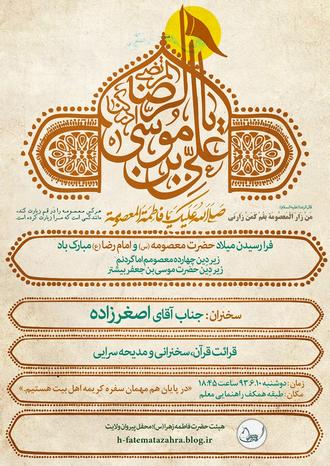 یا علی بن موسی الرضا المرتضی
قال الرضا (علیه السلام):
مَن زارَ المَعصومَةَ بِقُم كَمَن زارَنی
صلی الله علیک یا فاطمة المعصومة
هر کس معصومه را در قم زیارت کند،
مانند کسی است که مرا زیارت کرده است.
فرا رسیدن میلاد حضرت معصومه (س) و امام رضا (ع) مبارک باد
زیر دین چهارده معصومم اما گردنم
زیر دین حضرت موسی بن جعفر بیشتر
سخنران: جناب آقای اصغرزاده
قرائت قرآن، سخنرانی و مدیحه سرایی
زمان: دوشنبه ۹۳.۶.۱۰ ساعت ۱۸:۴۵
مکان: طبقه همکف راهنمایی معلم
«در پایان هم مهمان سفره کریمه اهل بیت هستیم.»
هیئت حضرت فاطمه زهرا (س): محفل پیروان ولایت
h-fatematazahra.blog.ir